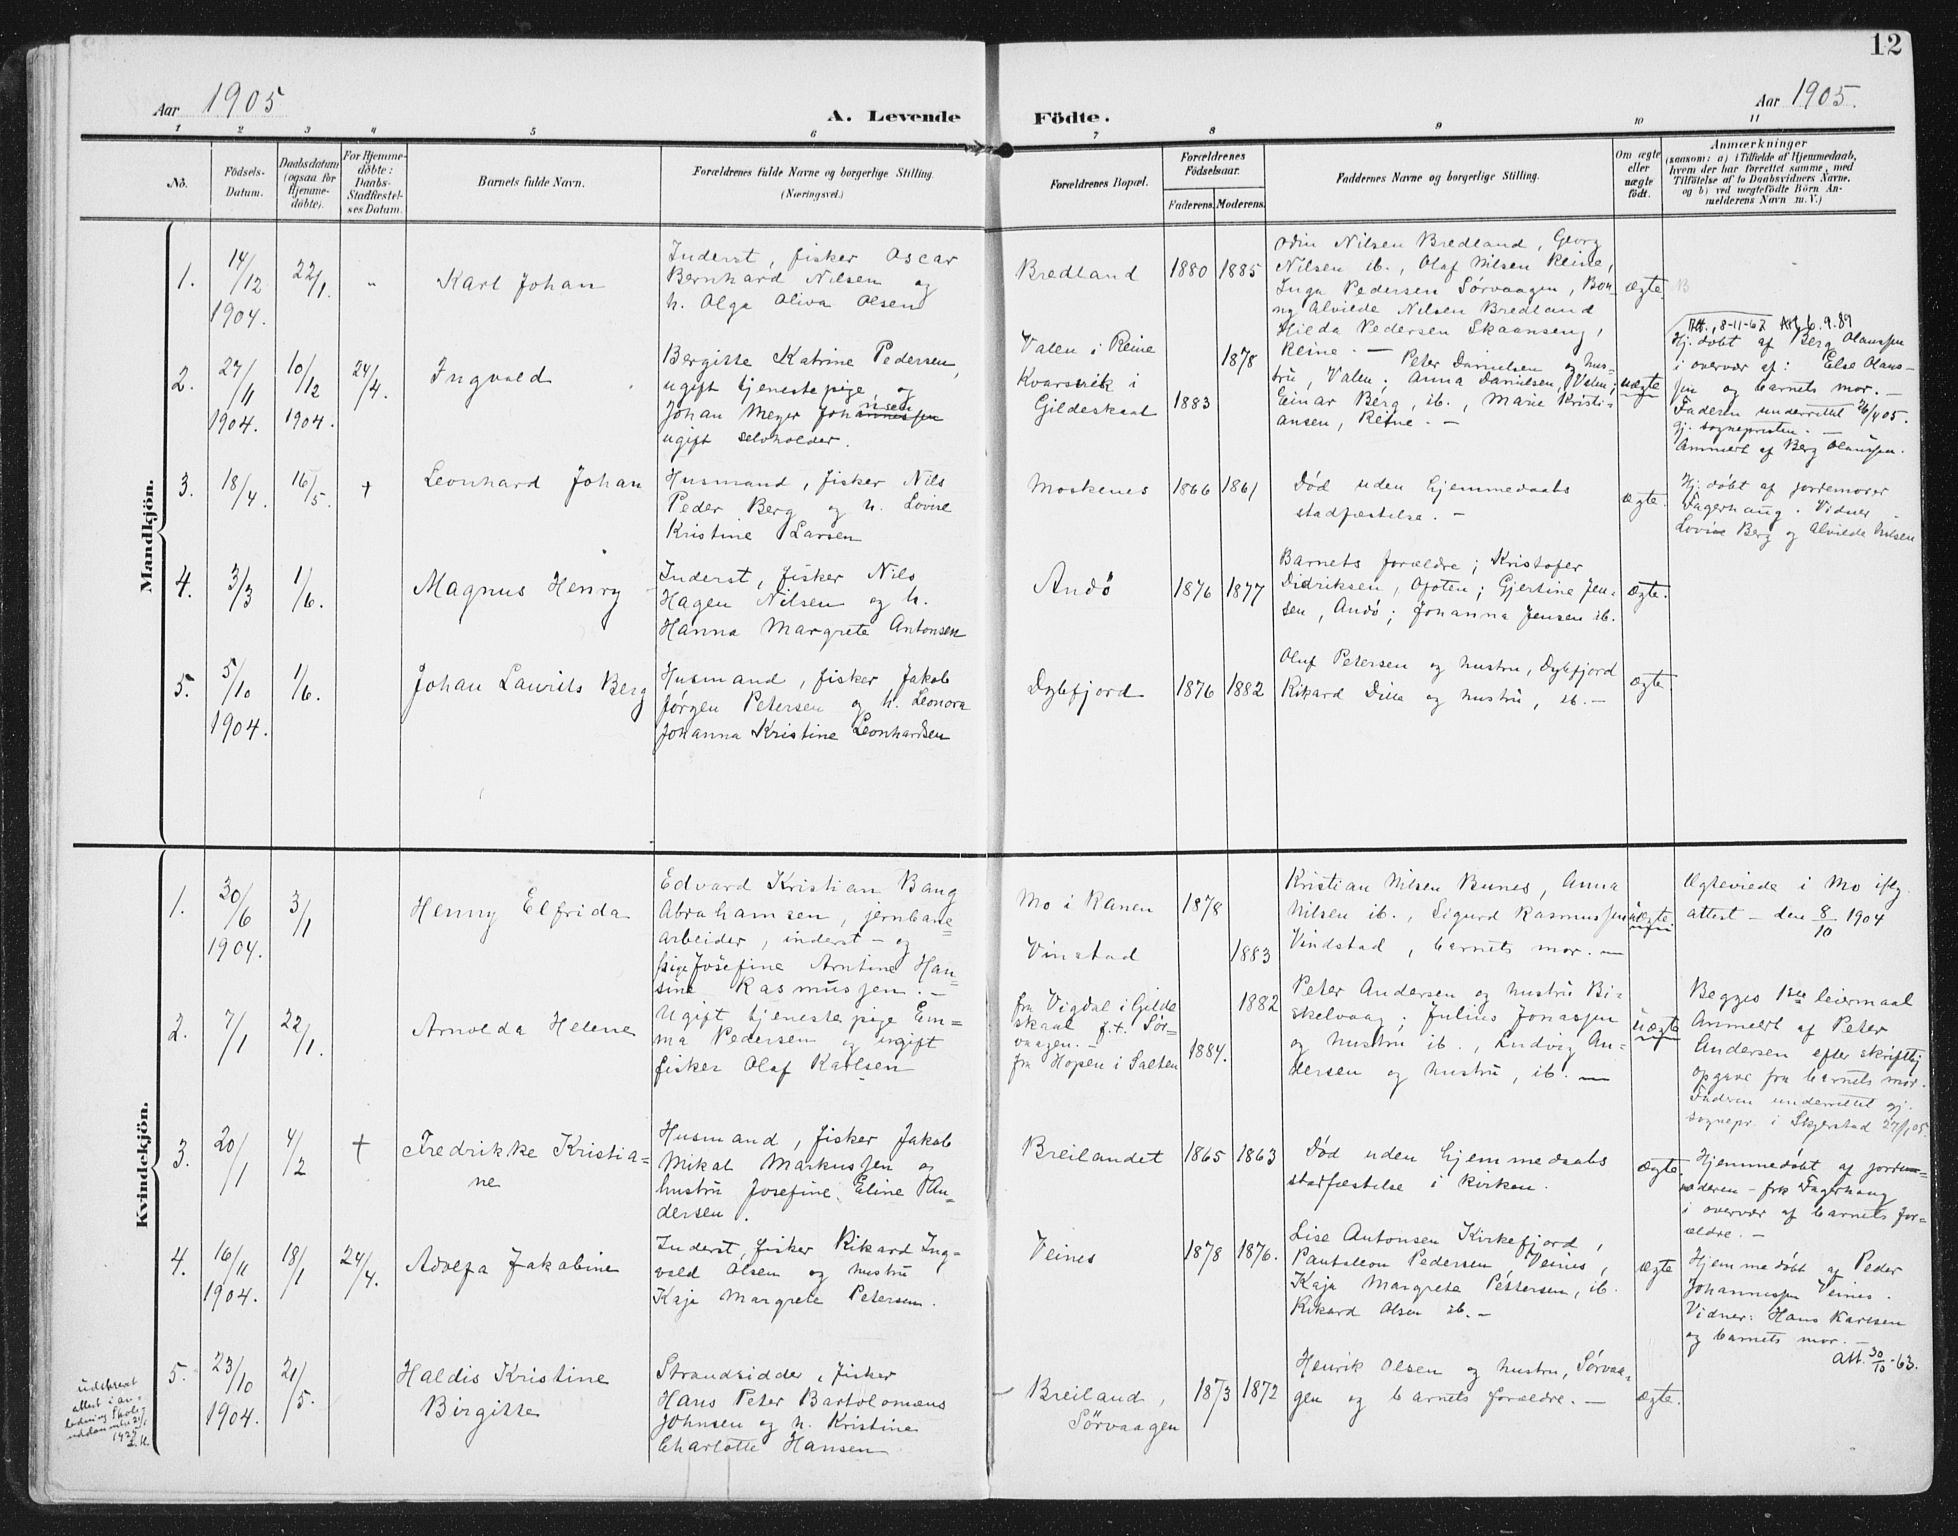 12
Aar 1905
A. Levende
Födte.
Aar 1905.
1 2 3 4 5 6 7 8 9 10 11
No.
Födsels-
Datum.
Daabsdatum
(ogsaa for
Hjemme-
döbte).
For Hjemme-
döbte:
Daabs-
Stadfæstel-
ses Datum.
Barnets fulde Navn.
Forældrenes fulde Navne og borgerlige Stilling.
(Næringsvei.)
Forældrenes Bopæl.
Forældrenes
Födselsaar.
Faderens. Moderens.
Faddernes Navne og borgerlige Stilling.
Om ægte
eller
uægte
födt.
Anmærkninger
(saasom: a) i Tilfælde af Hjemmedaab,
hvem der har forrettet samme, med
Tilföielse af to Daabsvidners Navne,
og b) ved uægtefödte Börn An-
melderens Navn m. V.)
Mandkjön.
1.
14/12
1904.
22/1.
"
Karl Johan
Inderst, fisker Oscar
Bernhard Nilsen og
h. Olga Oliva Olsen
Bredland
1880 1885
Odin Nilsen Bredland, Georg
Nilsen ib., Olaf Nilsen Reine,
Inga Pedersen Sørvaagen, Bon-
ny Alvilde Nilsen Bredland
Hilda Pedersen Skaanseng,
Reine. —
ægte.
2.
27/11
1904.
10/12
1904.
24/4.
Ingvald
Bergitte Katrine Pedersen,
ugift tjenestepige, og
Johan Meyer Johannessen
nsen
ugift selvholder.
Valen i Reine
Kvarsvik i
Gildeskaal
1878
1883
Peter Danielsen og hus-
tru, Valen; Anna Danielsen, Valen;
Einar Berg, ib., Marie Kristi-
ansen, Reine. —
uægte
Att. 8-11-62 Att. 6.9.89
Hj. döbt af Berg Olaussen
i overvær af: Else Olaus-
sen og barnets mor. —
Faderen underrettet 26/4 05.
gj. sognepresten. —
Anmeldt af Berg Olaussen.
3.
18/4.
16/5.
+
Leonhard Johan
Husmand, fisker Nils
Peder Berg og h. Lovise
Kristine Larsen
Moskenes
1866 1861
Död uden hjemmedaabs
stadfæstelse. —
ægte.
Hj. döbt af jordemoder
Fagerhaug. Vidner
Lovise Berg og Alvilde Nilsen
4.
3/3
1/6.
Magnus Henry
Inderst, fisker Nils
Hagen Nilsen og h.
Hanna Margrete Antonsen
Andö
1876 1877
Barnets forældre; Kristofer
Didriksen, Ofoten; Gjertine Jen-
sen, Andö; Johanna Jensen ib.
ægte.
5.
5/10
1904.
1/6.
Johan Laurits Berg
Husmand, fisker Jakob
Jørgen Petersen og h. Leonora
Johanna Kristine Leonhardsen
Dybfjord
1876 1882
Oluf Petersen og hustru, Dybfjord
Rikard Dille og hustru, ib. —
ægte.
Kvindekjön.
1.
30/6
1904.
3/1
Henny Elfrida
Edvard Kristian Bang
Abrahamsen, jernbane-
arbeider, inderst — og
pige Josefine Arntine Han-
sine Rasmussen. —
Mo i Ranen
Vinstad
1878
1883
Kristian Nilsen Bunes, Anna
Nilsen ib., Sigurd Rasmussen
Vindstad, barnets mor. —
uægte
Ægteviede i Mo iflg.
attest — den 8/10 1904
2.
7/1
22/1.
Arnolda Helene
Ugift tjenestepige Em-
ma Pedersen og ugift
fisker Olaf Karlsen
fra Vigdal i Gilde
skaal f.t. Sör-
vaagen. —
fra Hopen i Salten
1882
1884.
Peter Andersen og hustru Bi-
skelvaag; Julius Jonassen
og hustru ib., Ludvig An-
dersen og hustru, ib. —
uægte
Begges 1ste leiermaal
Anmeldt af Peter
Andersen efter skriftlig
opgave fra barnets mor.
Faderen underrettet gj.
sognepr. i Skjerstad 27/1 05.
3.
20/1
4/2
+
Fredrikke Kristia-
ne
Husmand, fisker Jakob
Mikal Markussen og
hustru Josefine Eline An-
dersen.
Breilandet
1865 1863
Död uden hjemmedaabs
stadfæstelse i kirken.
ægte.
Hjemmedöbt af jordem-
oderen — frk Fagerhaug
i overvær af barnets for-
ældre. —
4.
16/11
1904.
18/1
24/4.
Adolfa Jakobine
Inderst, fisker Rikard Ing-
vald Olsen og hustru
Kaja Margrete Petersen.
Veines
1878 1876.
Lise Antonsen Kirkefjord,
Pantaleon Pedersen Veines,
Kaja Margrete Pettersen, ib.
Rikard Olsen ib. —
ægte
Hjemmedöbt af Peder
Johannessen Veines.
Vidner: Hans Karlsen
og barnets mor. —
Att. 30/10 -63.
5.
23/10
1904.
21/5.
Haldis Kristine
Birgitte
Strandsidder, fisker
Hans Peter Bartolomæus
Johnsen og h. Kristine
Charlotte Hansen
Breiland,
Sörvaagen
1873 1872
Henrik Olsen og hustru, Sörvaa-
gen og barnets forældre. —
ægte.
udskrevet
attest i an-
ledning Skole-